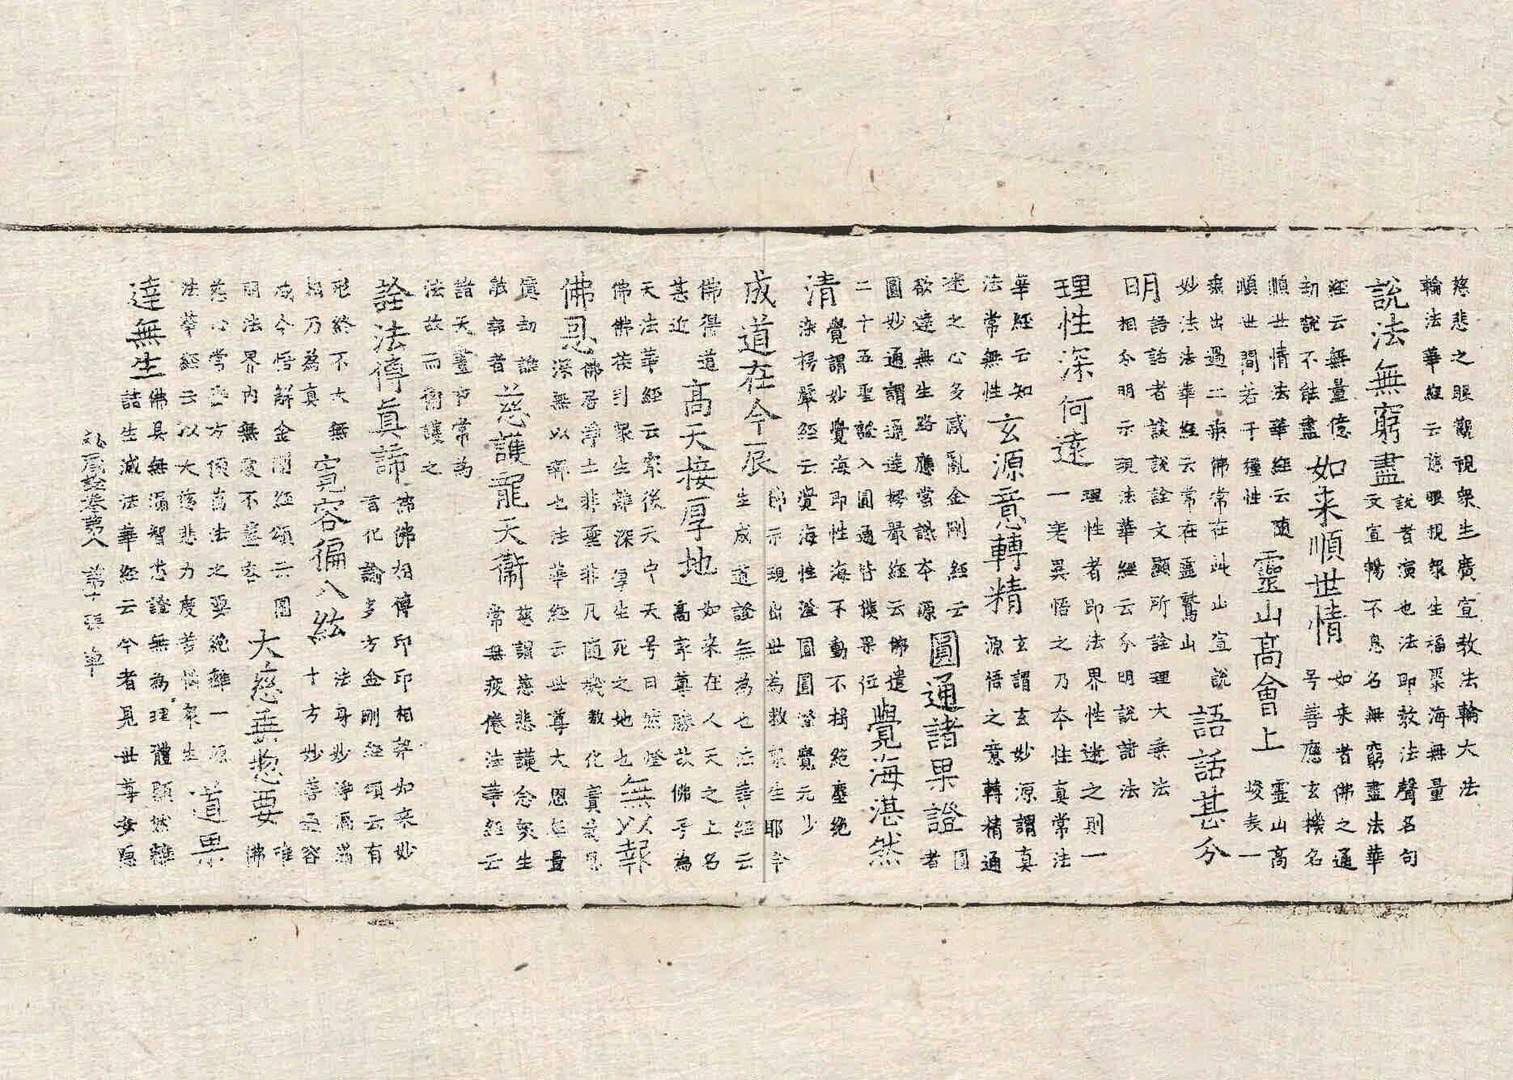 慈悲之眼觀視衆生廣宣教法輪大法
輪法華經云慈眼視衆生福聚海無量
說法無窮盡
說者演也法即教法聲名句
文宣暢不息名無窮盡法華
經云無量億
劫說不能盡
如来順世情
如来者佛之通
号善應玄機名
順世情法華經云隨
順世間若干種性
靈山高會上
靈山高
峻表一
乘出過二乘佛常在此山宣說
妙法法華經云常在靈鷲山
語話甚分
明
語話者談說詮文顯所詮理大乘法
日相分明示現法華經云分明說諸法
理性深何達
理性者即法界性迷之則一
一老異悟之乃本性真常法
華經云知
法常無性
玄源意轉精
玄謂玄妙源謂真
源悟之意轉精通
迷之心多惑亂金剛經云
欲達無生路應當識本源
圓通諸果證
圓
者
圓妙通謂通達楞嚴經云佛遣
二十五聖說入圓通皆獲果位
覺海湛然
清
覺謂妙覺海即性海不動不揖絕塵絕
染楞嚴經云覺海性澄圓圓澄覺元少
成道在今辰
佛示現出世為救衆生耶今
生成道證無為也法華經云
佛得道
甚近
高天接厚地
如来在人天之上名
高尊勝故佛号為
天法華經云衆後天中天号曰然燈
佛佛接引衆生離深厚生死之地也
無以報
佛恩
佛居淨土非聖非凡隨機教化實慈恩
深無以報也法華經云世尊大恩無量
億劫誰
能報者
慈護龍天衞
慈謂慈悲護念衆生
常無疲倦法華經云
諸天晝夜常為
法故而衞護之
詮法傳真諦
佛佛相傳印印相契如来妙
言化諭多方金剛經頌云有
形終不大無
相乃為真
寬容徧八紘
法身妙淨為滿
十方妙善無容
咸令悟解金剛經頌云圓
同法界內無處不莖容
大慈無惣要
唯
佛
慈心常憂方便萬法之要總雖一源
法華經云以大慈悲力度苦惱衆生
道果
達無生
佛具無漏智悲證無為理體顯然離
諸生滅法華經云今者見世尊安隱
祕藏詮卷第八 第十張 章